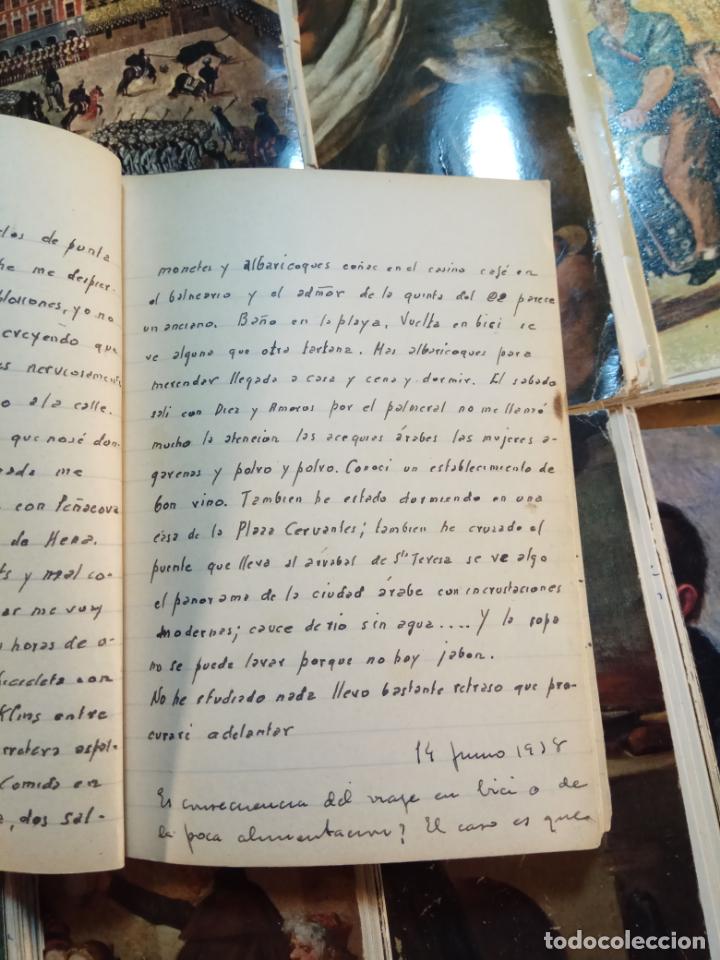 dos de punta
he me despier-
blosones, yo no
creyendo que
as nerviosamente
o a la calle.
que no sé don-
me
s con Peñacova
de Hena.
y mal co-
ar me voy
horas de a-
bicicleta con
Kims entre
rretera espal-
Comida en
, dos sal-
monetes y albaricoques coñac en el casino café en
el balneario y el admor de la quinta del 02 parece
un anciano. Baño en la playa, Vuelta en bici se
ve alguna que otra tartana. Mas albaricoques para
merendar llegada a casa y cena y dormir. El sabado
sali con Diez y Amoros por el palmeral no me llamó
mucho la atencion las acequias árabes las mujeres a-
garenas y polvo y polvo. Conoci un establecimiento de
bon vino. Tambien he estado dormiendo en una
casa de la Plaza Cervantes; tambien he cruzado el
puente que lleva al arrabal de Sta Teresa se ve algo
el panorama de la ciudad árabe con incrustaciones
modernas; cauce de rio sin agua.... Y la ropa
no se puede lavar porque no hay jabon.
No he estudiado nada llevo bastante retraso que pro-
curaré adelantar
14 Junio 1938
Es consecuencia del viaje en bici o de
la poca alimentacion? El caso es que
todocoleccion